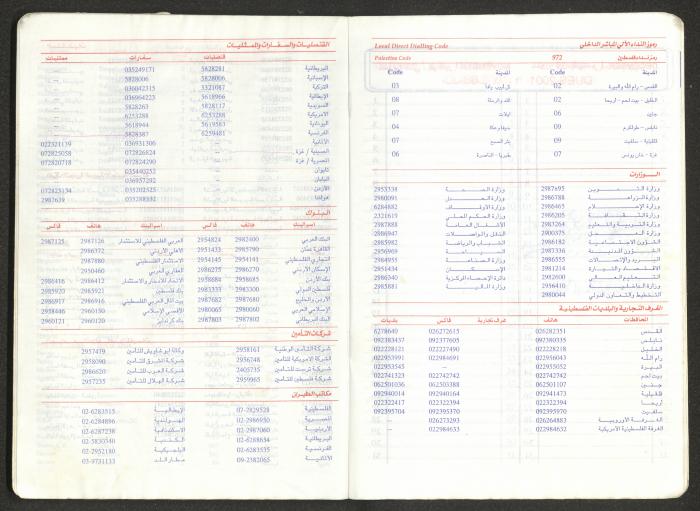 رموز النداء الآلي المباشر الداخلي Local Direct Dialling Code
رمز نداء فلسطين 972 Palestine Code
المدينة Code المدينة Code
القدس - رام الله والبيرة 02 تل أبيب - يافا 03
الخليل - بيت لحم - أريحا 02 اللد والرملة 08
جنين 06 إيلات 07
نابلس - طولكرم 09 حيفا وعكا 04
قلقيلية - سلفيت 09 بئر السبع 07
غزة - خان يونس 07 طبريا - الناصرة 06
الوزارات
وزارة التموين 2987695 وزارة الصحة 2953338
وزارة الزراعة 2986788 وزارة العدل 2980091
وزارة الإعلام 2986465 وزارة الأوقاف 6284882
وزارة الثقافة 2986205 وزارة الحكم المحلي 2321619
وزارة التربية والتعليم 2987264 وزارة الأشغال العامة 2987888
وزارة العمل 2900375 النقل والمواصلات 2986947
الشؤون الاجتماعية 2986182 الشباب والرياضة 2985982
الشؤون المدنية 2987336 وزارة السياحة 2956969
البريد والاتصالات 2986555 وزارة المالية 2984955
الاقتصاد والتجارة 2981214 وزارة الإسكان 2951434
التعليم العالي 2982600 دائرة الإحصاء المركزية 2986340
وزارة الداخلية 2956410 وزارة البيئة 2985881
التخطيط والتعاون الدولي 2980044
الغرف التجارية والبلديات الفلسطينية
المحافظات هاتف غرف تجارية فاكس بلديات
القدس 026282351 026272615 6278640
نابلس 097380335 092377605 092383437
الخليل 022228218 022227490 022228121
رام الله 022956043 022984691 022953991
البيرة 022955052 — 022953545
بيت لحم 022742742 022742742 022741323
جنين 062501107 062503388 062501036
قلقيلية 092941473 092940164 092940014
أريحا 022322394 022322394 022322417
سلفيت 092395970 092395370 092395704
الغرفة الأوروبية 026264883 026273293 —
الغرفة الفلسطينية الأمريكية 022984632 022984633 —
القنصليات والسفارات والممثليات
قنصليات سفارات ممثليات
البريطانية 5828281 035249171
الإسبانية 5828006 5828006
التركية 5321087 036042315
الإيطالية 5618966 036964223
السويدية 5828117 5828263
الأمريكية 6253288 6253288
اليونانية 5619583 5618944
الفرنسية 6259481 5828387
الألمانية 036931306 022321139
الصينية / غزة 072826824 072825058
المصرية / غزة 072824290 072820718
تايوان 035440252
اليابان 036957292
الأردن 035202525 072825134
هولندا 035288332 2987639
البنوك
اسم البنك هاتف فاكس اسم البنك هاتف فاكس
البنك العربي 2982400 2954824 العربي الفلسطيني للاستثمار 2987126 2987125
القاهرة عمان 2985790 2951433 الأهلي الأردني 2986372
التجاري الفلسطيني 2954141 2954145 الاستثمار الفلسطيني 2987880
الإسكان الأردني 2986270 2986275 العقاري العربي 2950460
بنك الأردن 2958685 2958684 الاتحاد للادخار والاستثمار 2986412 2986416
فلسطين الدولي 2983300 2983333 بنك فلسطين 2985921 2985920
الأردن والخليج 2987680 2987682 بيت المال العربي الفلسطيني 2986916 2986917
الإسلامي العربي 2980060 2980065 الأقصى الإسلامي 2960450 2958446
البنك البريطاني 2987802 2987803 بنك كردنايز 2960120 2960121
شركات التأمين
شركة التأمين الوطنية 2958161 وكالة أبو غاويش للتأمين 2957479
الشركة الأمريكية للتأمين 2956748 شركة المشرق للتأمين 2958090
شركة ترست للتأمين 2405735 شركة العرب للتأمين 2986620
شركة فلسطين للتأمين 2959965 شركة الهلال للتأمين 2957235
مكاتب الطيران
الفلسطينية 07-2829528 الإيطالية 02-6283515
المصرية 02-2986950 الهولندية 02-6284896
الأردنية 02-2987060 الإسكندنافية 02-6287238
البريطانية 02-6288654 الكندية 02-5830340
الفرنسية 02-6283535 البلجيكية 02-2952180
الألمانية 09-2382065 مطار اللد 03-9731133